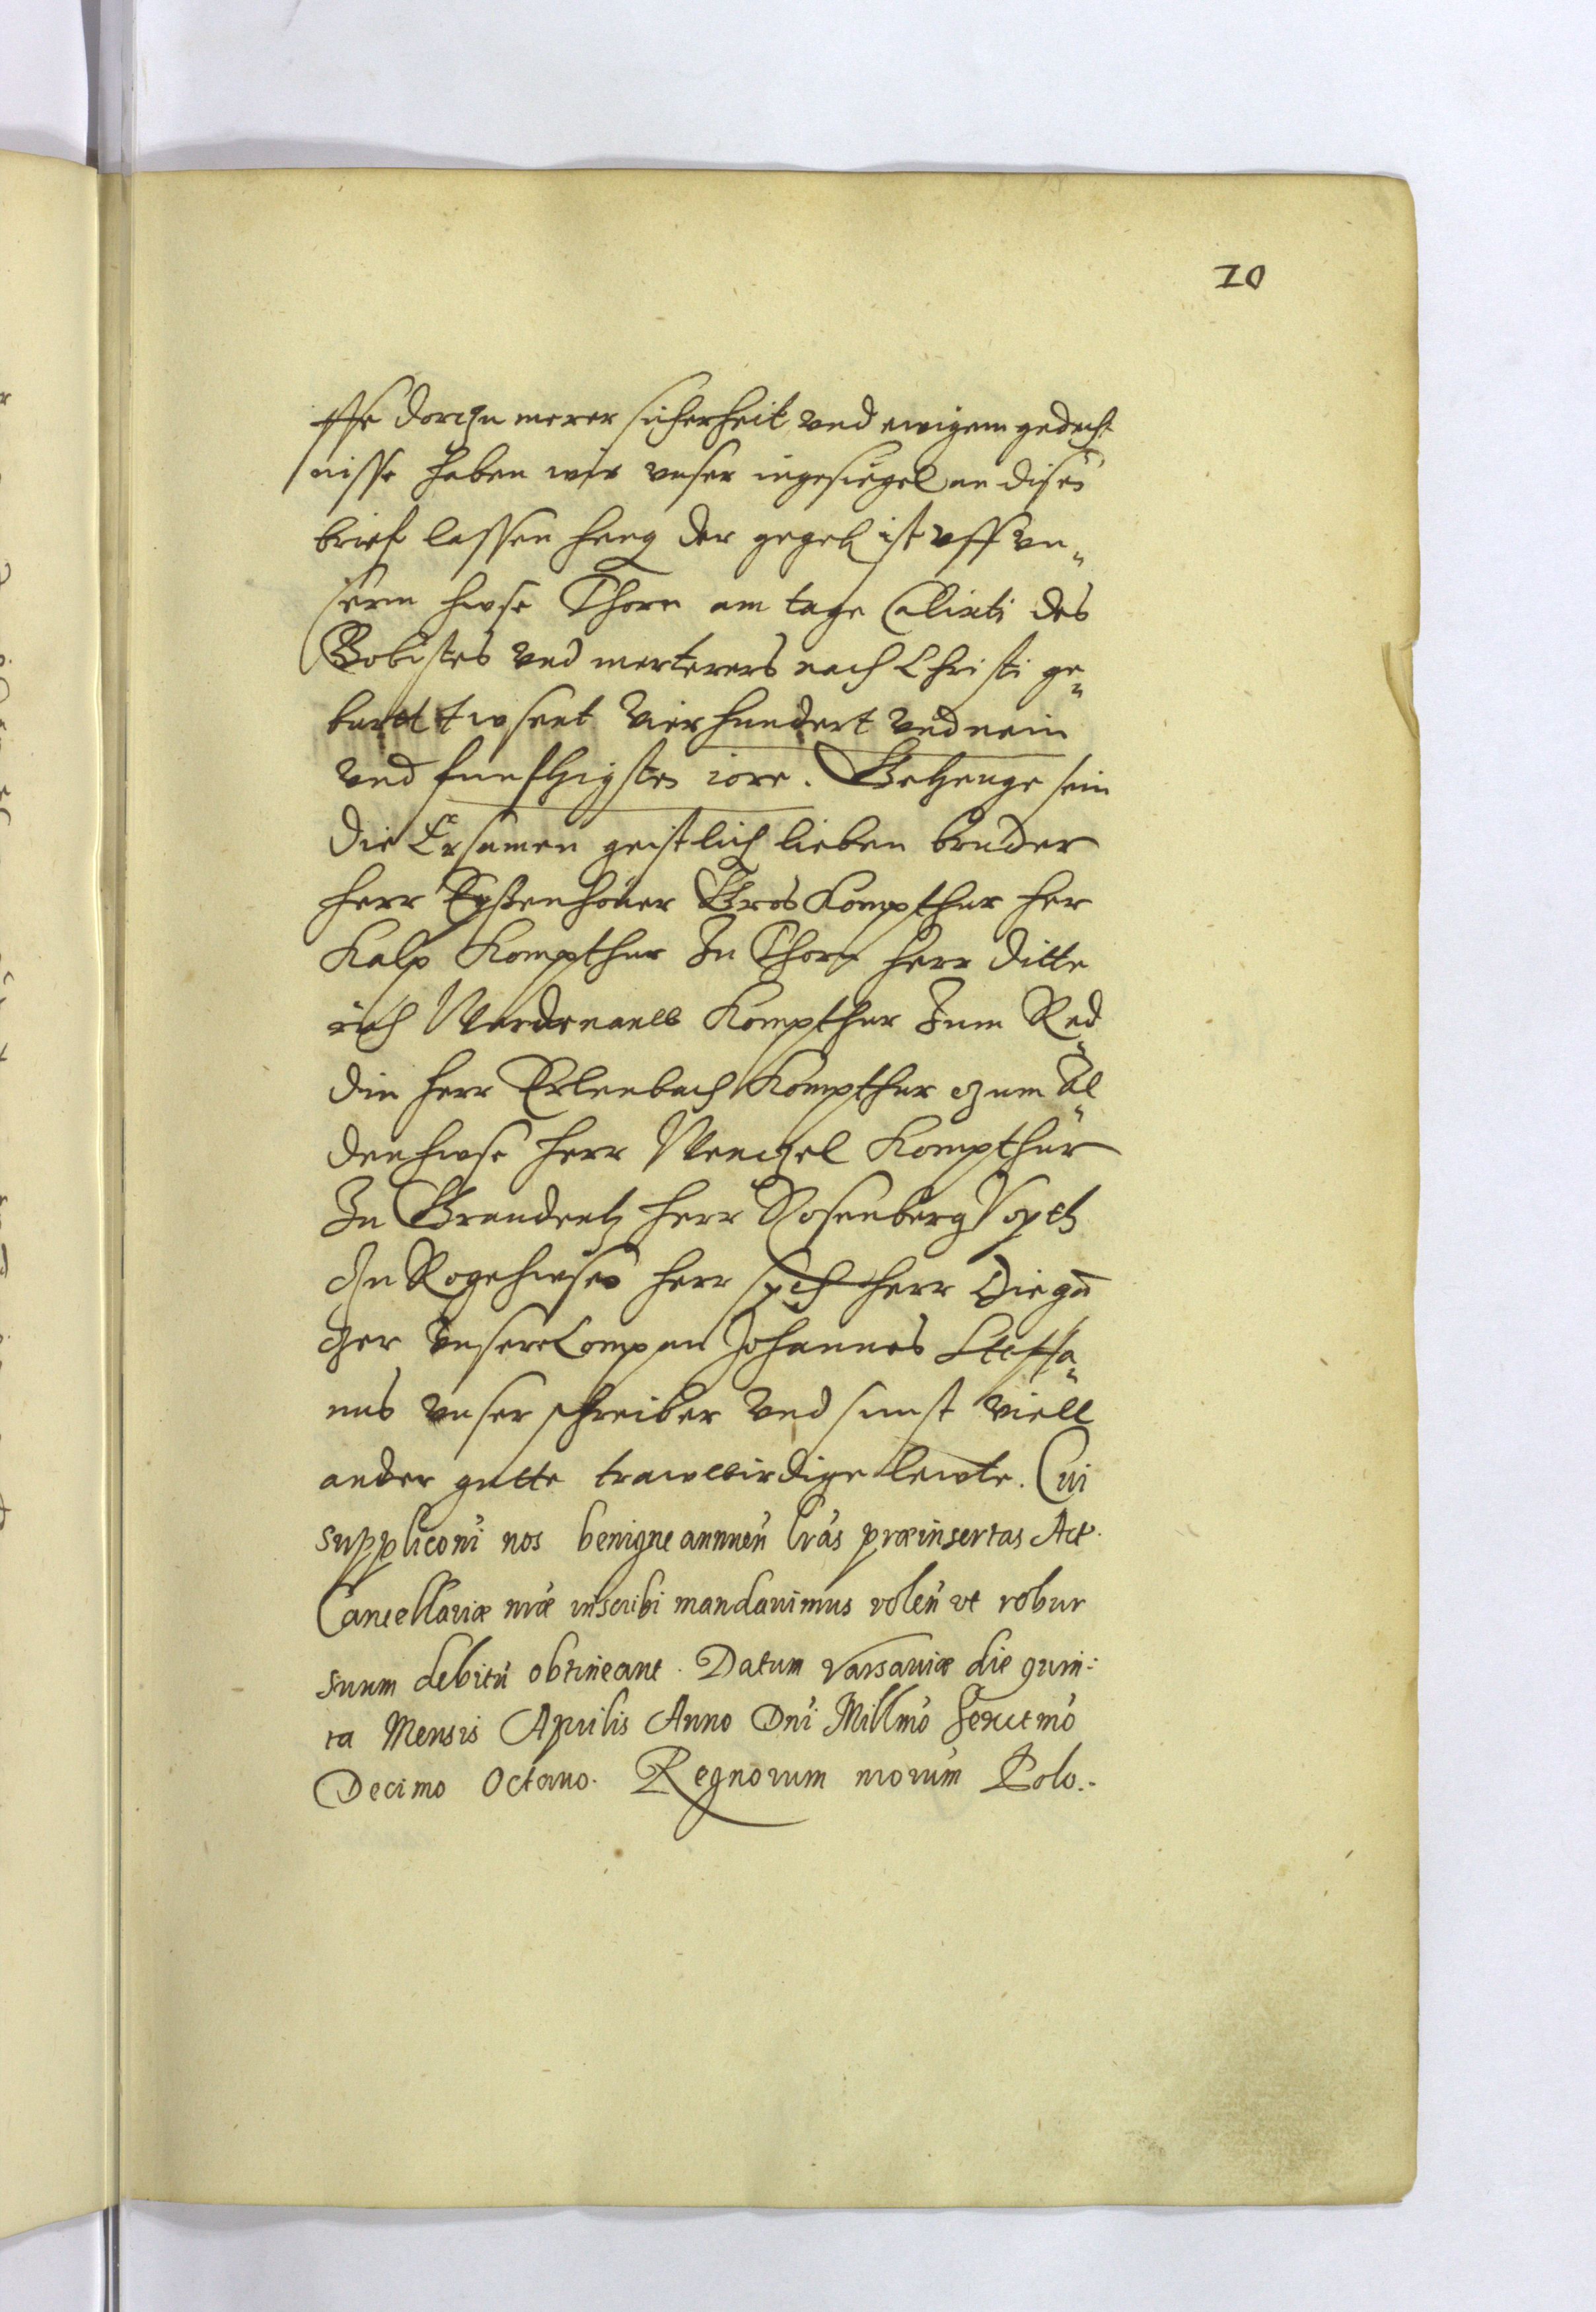 10
sse dorczu merer sicherheit vnd ewigem gedecht
nisse haben wir vnser ingesiegel an diesen
brief lassen heng der gegeb ist vff vn„
serm hwse Thorn am tage Calixti des
Bobistes vnd merterers nach Christi ge„
burtt twsent Vier hundert vnd nein
vnd funfftzigsten iore. Getzeuge sein
die Ersamen geistlich lieben bruder
herr Groskompthur her
Kalp Kompthur In Thorn herr Ditte
rich Werdenaelb Kompthur Zum Red„
din herr Erlenbach Kompthur czum Al„
denhwse herr Wenczel Kompthur
In Graudentz herr Rosenberg Voyth
czu Rogehwsen herr herr
vnsere Compan Johannes Steffa„
nus vnser schreiber vnd sunst viell
ander gutte trawwirdige lewte. Cui
suppliconi nos benigne annuen lras præinsertas Act.
Cancellariæ nræ inscribi mandavimus volen vt robur
suum debitu obtineant. Datum Varsaviæ die quin:
ta Mensis Aprilis Anno Dni Millmo Sexctmo
Decimo Octavo. Regnorum nrorum Polo.